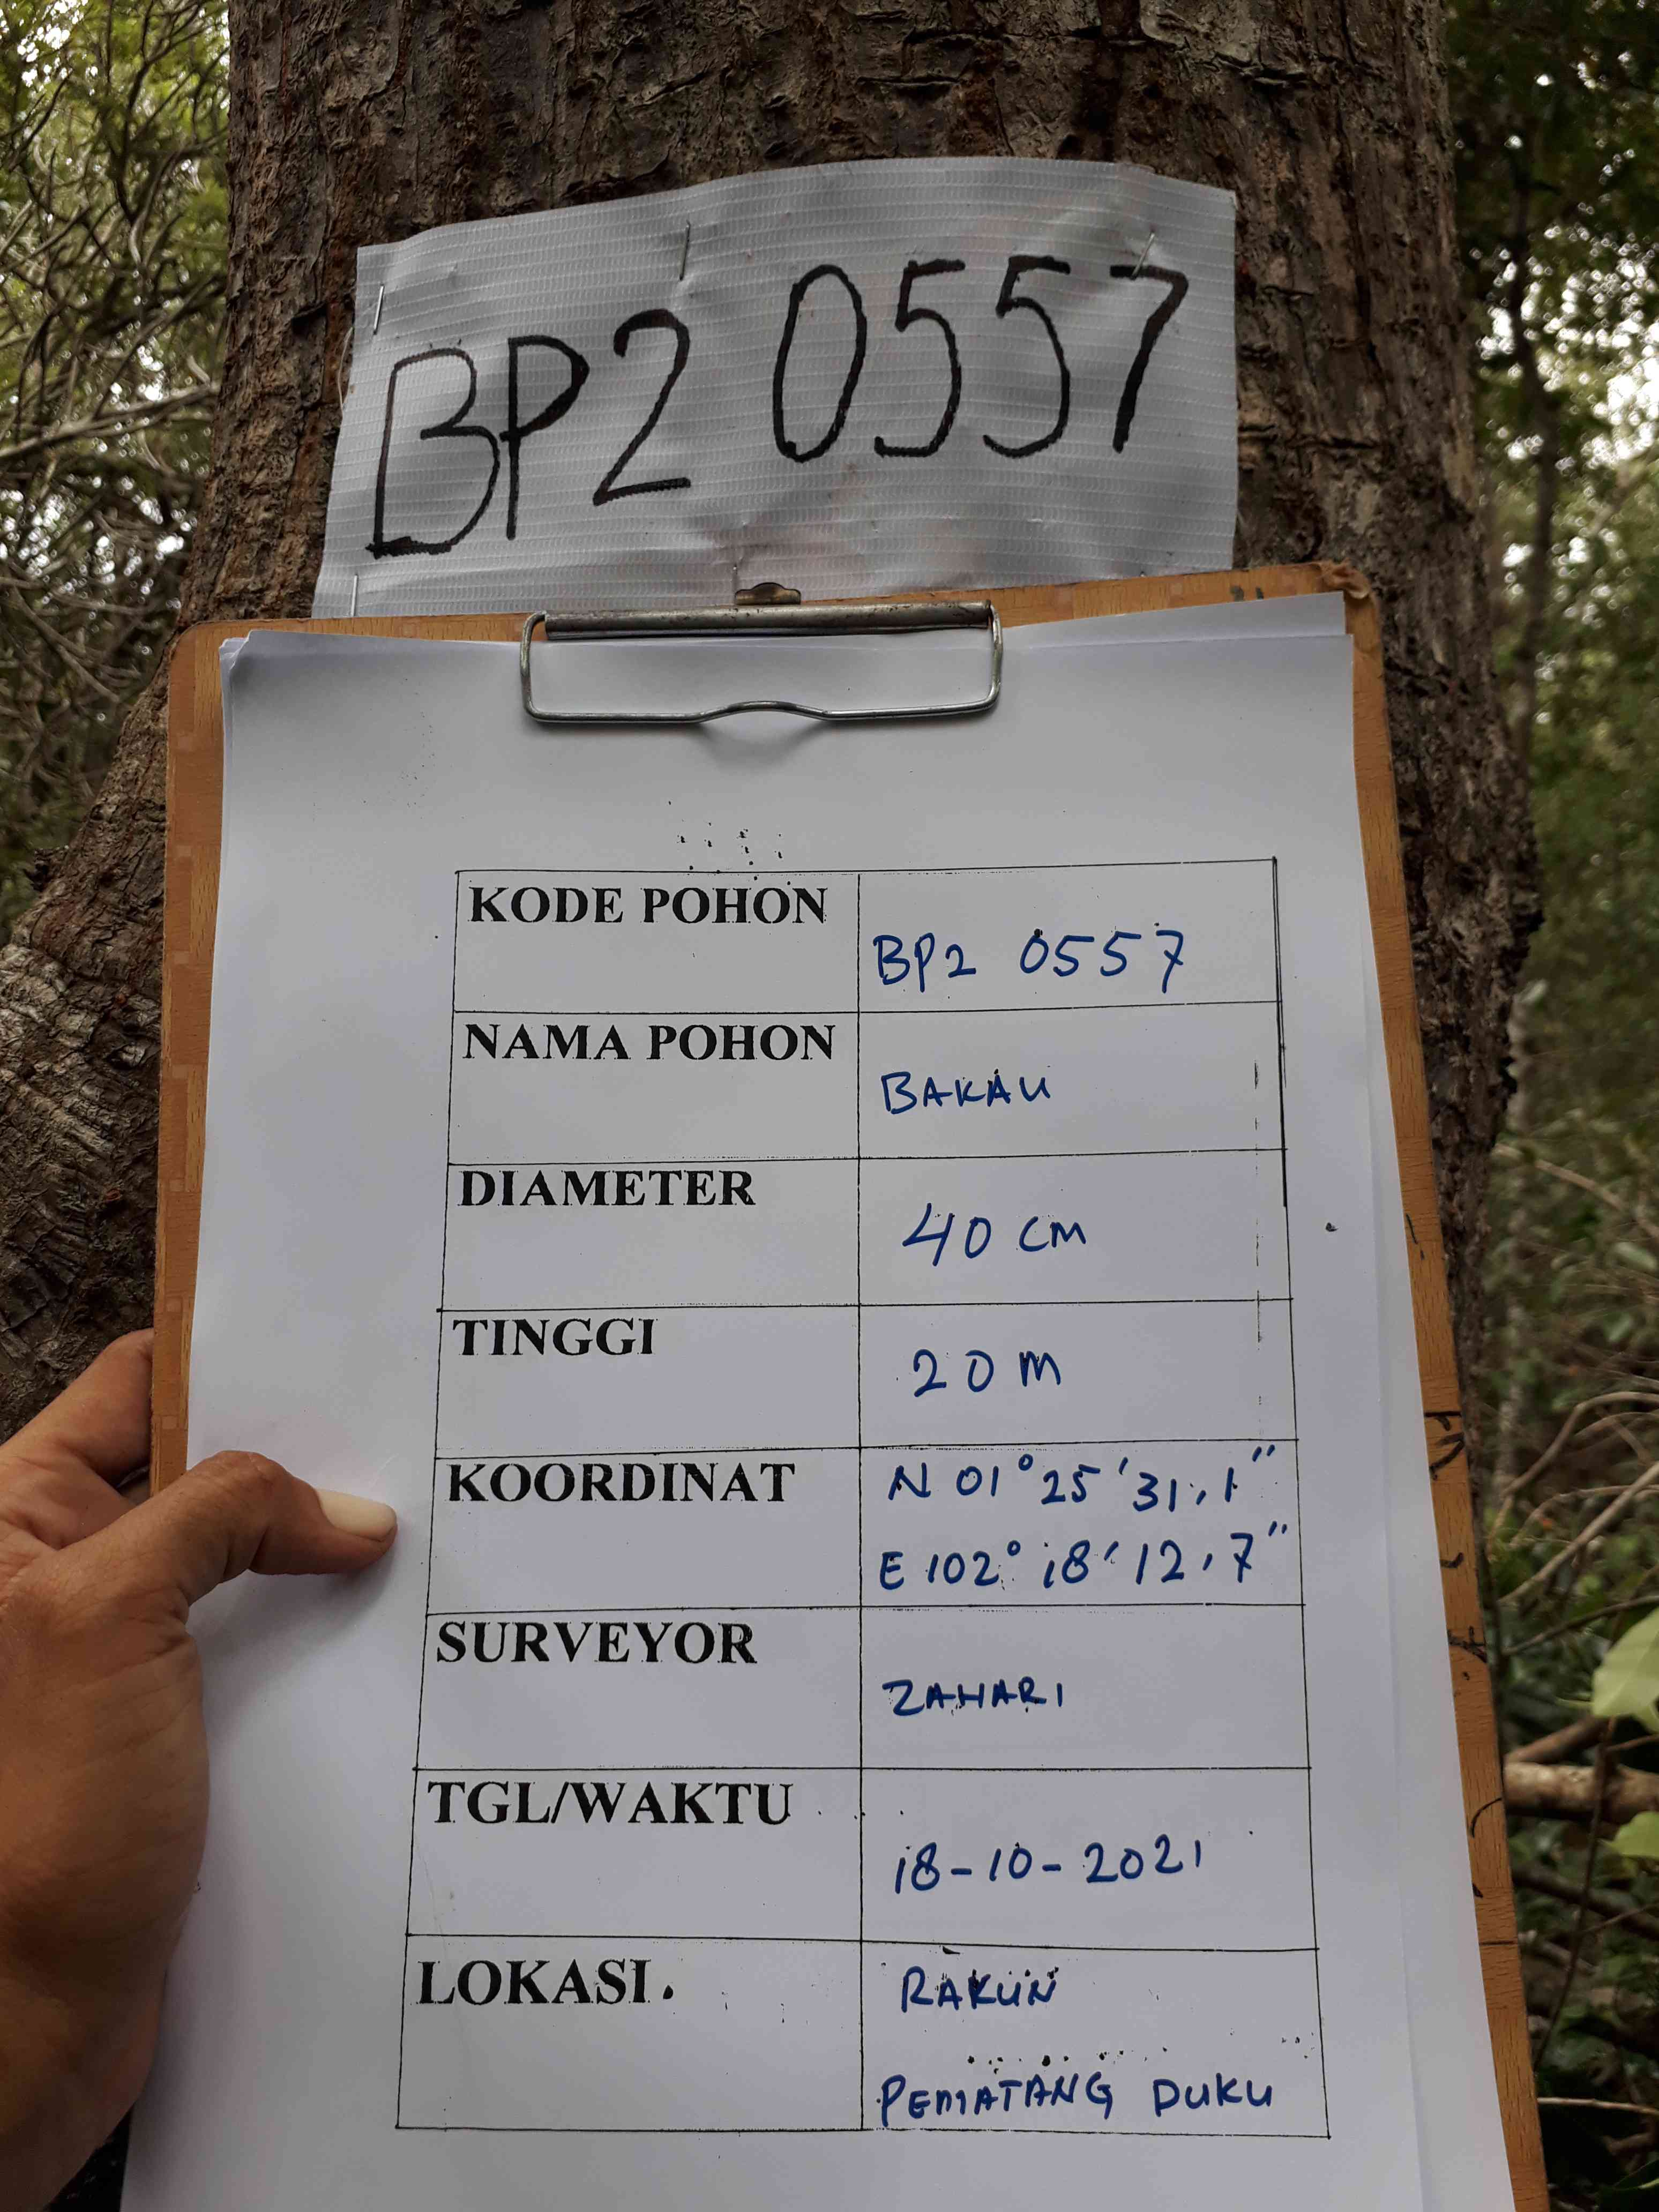 BP2 0557
KODE POHON
BP2 0557
NAMA POHON
BAKAU
DIAMETER
40 cm
TINGGI
20 m
KOORDINAT
N 01° 25' 31,1"
E 102° 18' 12,7"
SURVEYOR
ZAHARI
TGL/WAKTU
18-10-2021
LOKASI.
RAKUN
PEMATANG DUKU